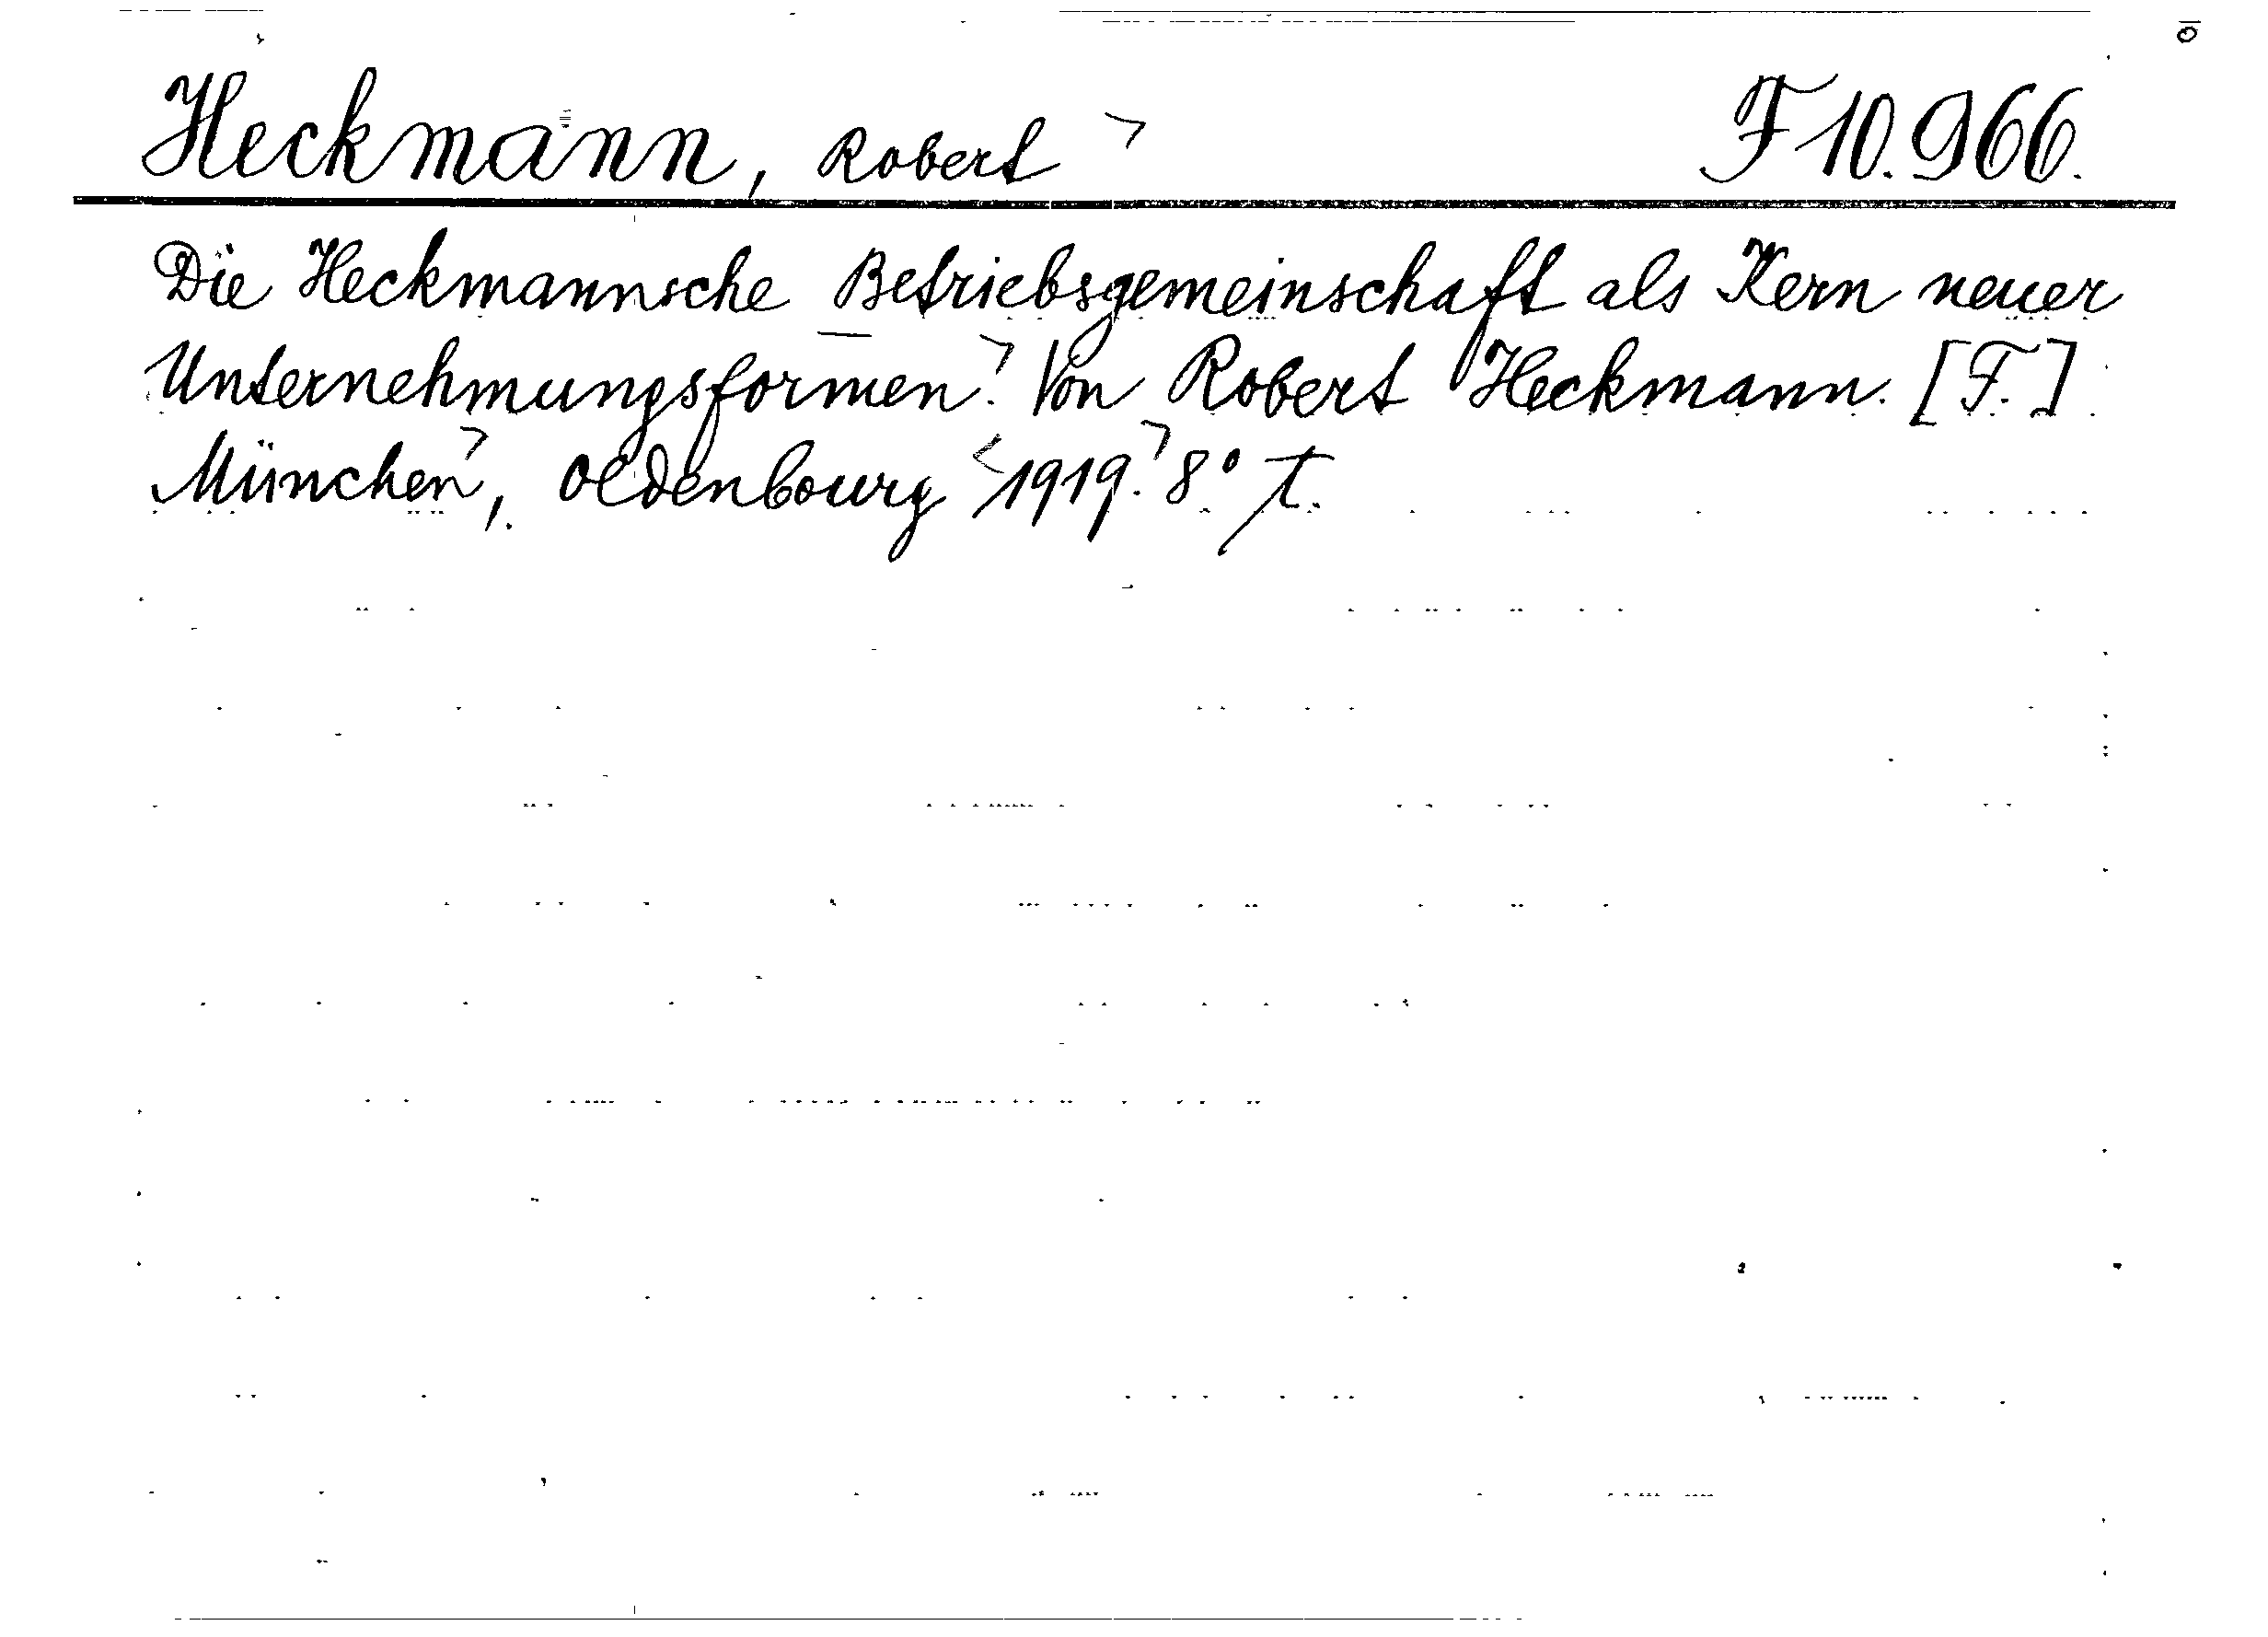 Heckmann, Robert ⌝ F 10.966.
Die Heckmannsche Betriebsgemeinschaft als Kern neuer
Unternehmungsformen.⌝ Von Robert Heckmann. [F.]
München⌝, Oldenbourg <1919.⌝ 8°